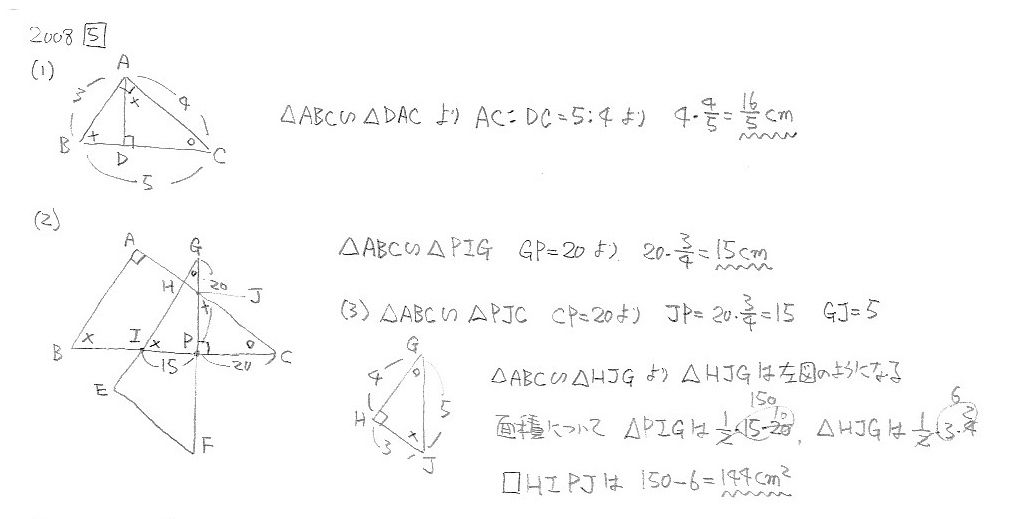 2008 5
(1)
A
3
4
×
B
×
○
C
D
5
△ABC∽△DAC より AC:DC=5:4より 4・4/5=16/5cm
(2)
A
G
○
20
H
J
×
B
×
I
×
P
○
C
15
20
E
F
△ABC∽△PIG GP=20より 20・3/4=15cm
(3) △ABC∽△PJC CP=20より JP=20・3/4=15 GJ=5
G
4
○
5
H
3
×
J
△ABC∽△HJGより △HJGは左図のようになる
150 6
面積について △PIGは1/2・15・20, △HJGは1/2・3・4
10 2
□HIPJは 150-6=144cm²